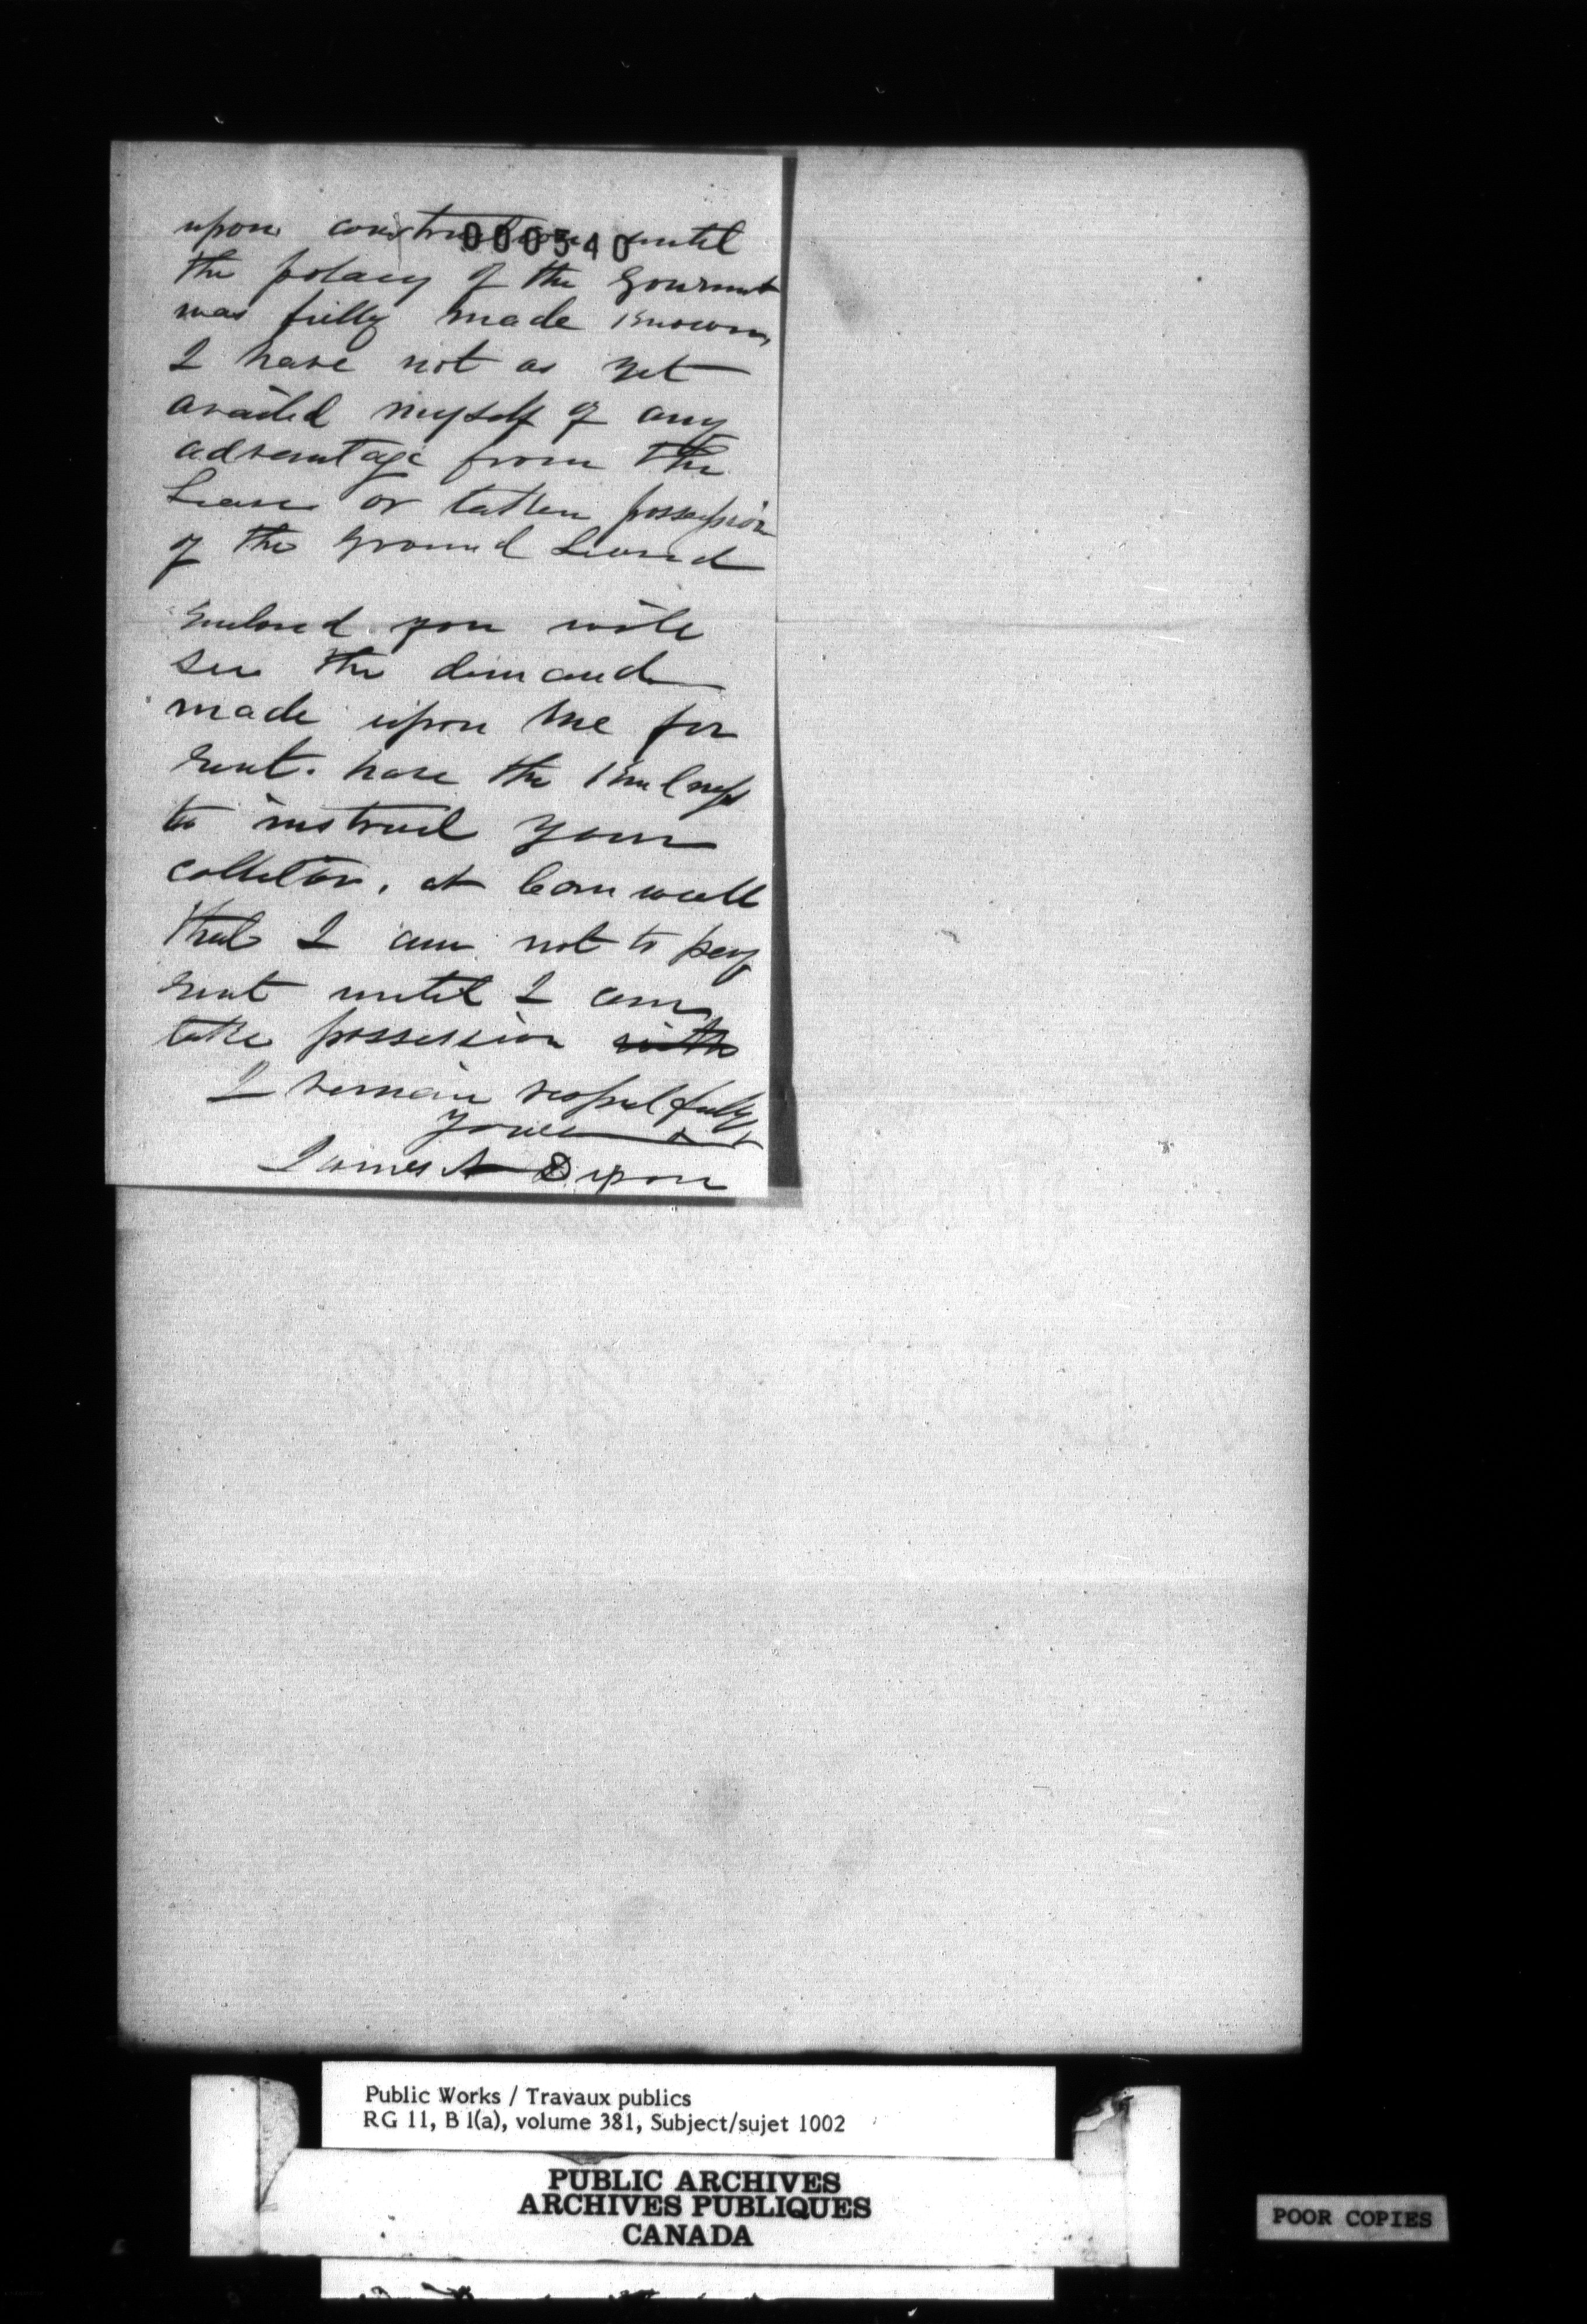 000540
upon construction until
the polacy of the Gourmnt
was fully made known,
I have not as yet
availed myself of any
advantage from the
Lease or taken possession
of the ground Leased
Enclosed you will
see the demand
made upon me for
rent. have the kindness
to instruct your
collector, at Cornwall
that I am not to pay
rent until I can
take possession with
I remain respectfully
yours
James A Dixon
Public Works / Travaux publics
RG 11, B 1(a), volume 381, Subject/sujet 1002
PUBLIC ARCHIVES
ARCHIVES PUBLIQUES
CANADA
POOR COPIES